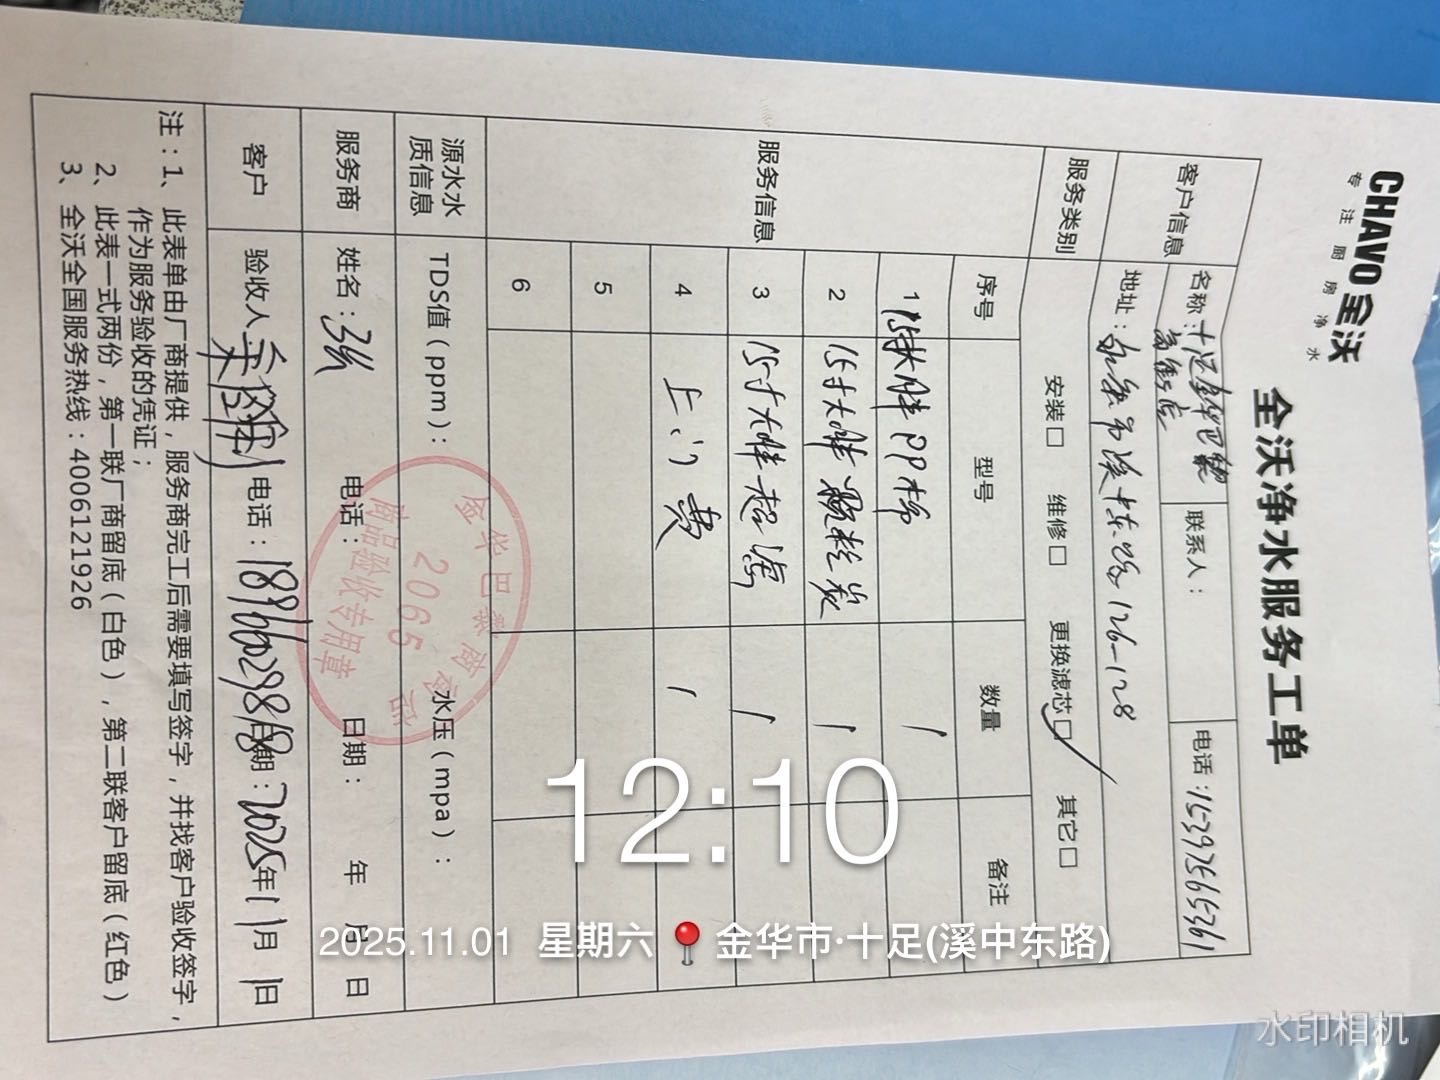 CHAVO 全沃
专注厨房净水
全沃净水服务工单
客户信息 名称：十足金华巴黎商街店 联系人： 电话：15397565361
地址：东路126-128
服务类别 安装□ 维修□ 更换滤芯□✓ 其它□
服务信息 序号 型号 数量 备注
1 15寸大胖PP棉 1
2 15寸大胖颗粒炭 1
3 15寸大胖超滤 1
4 上门费 1
5
6
源水水质信息 TDS值（ppm）： 水压（mpa）：
服务商 姓名： 电话： 日期： 年 月 日
客户 验收人 电话： 日期：2025年11月1日
注：1、此表单由厂商提供，服务商完工后需要填写签字，并找客户验收签字，
作为服务验收的凭证；
2、此表一式两份，第一联厂商留底（白色），第二联客户留底（红色）
3、全沃全国服务热线：4006121926
金华巴黎商街店
2065
商品验收专用章
12:10
2025.11.01 星期六 金华市·十足(溪中东路)
水印相机